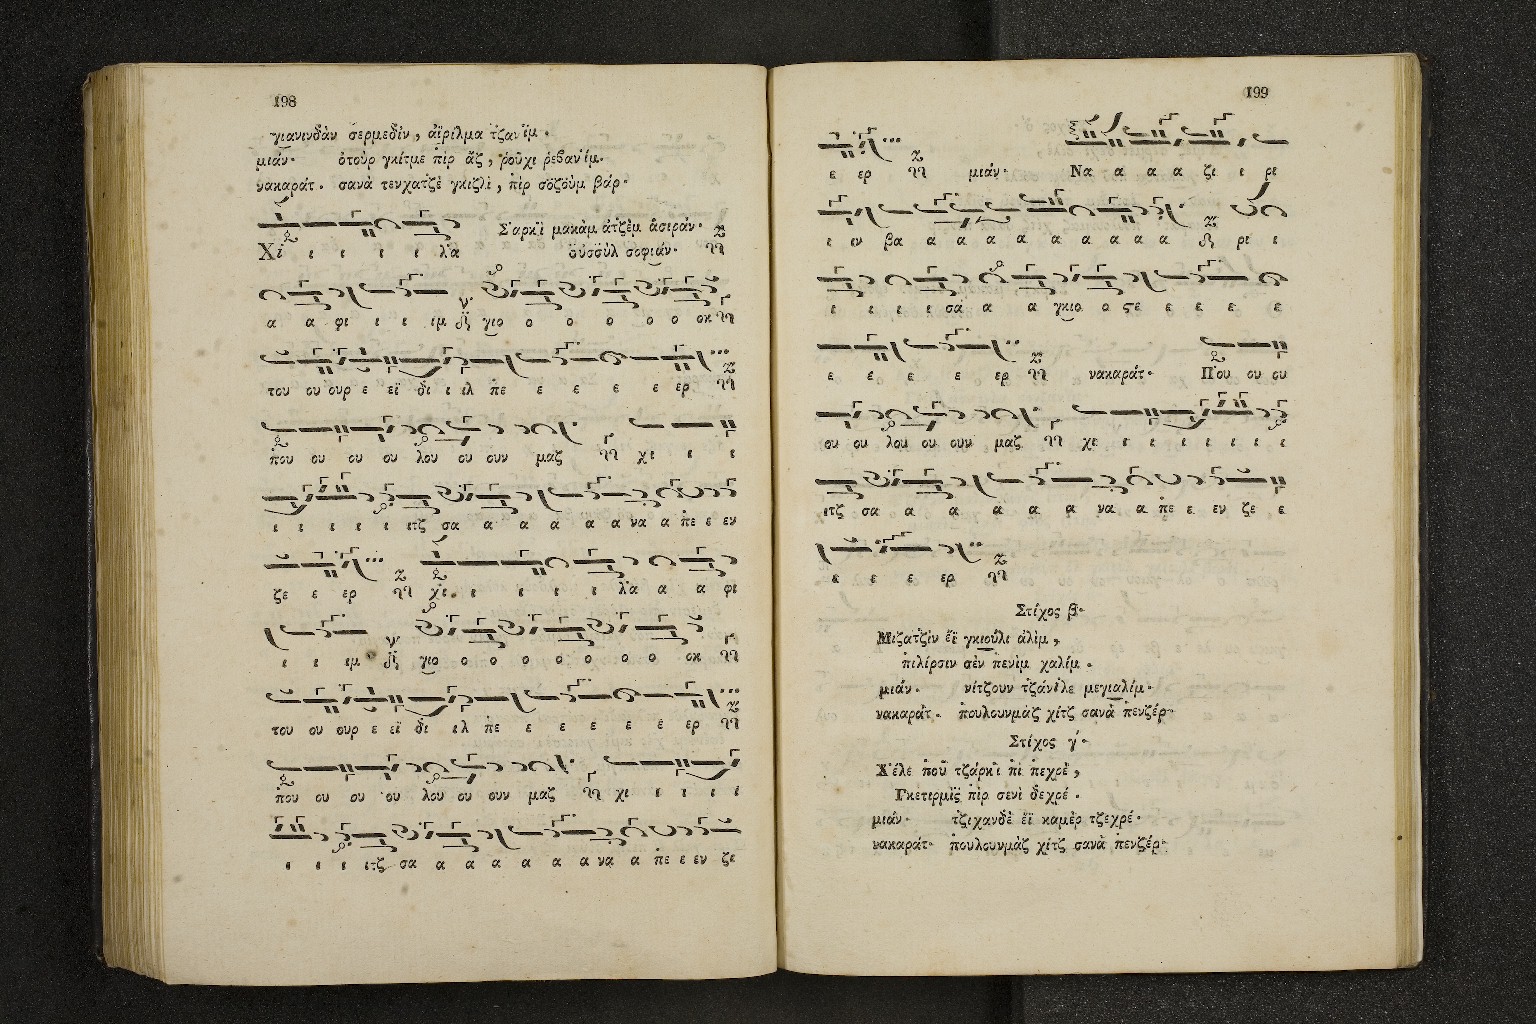 198
γιανινδὰν σερμεδὶν, ἀϊρίλμα τζανὶμ.
μιάν. ὀτοὺρ γκίτμε πὶρ ἄζ, ῥοῦχι ῥεβανὶμ.
νακαράτ. σανὰ τενχατζὲ γκιζλὶ, πὶρ σὀζοὺμ βάρ.
Σαρκὶ μακὰμ ἀτζὲμ ἀσιράν.
Χὶ ι ι ι ι λὰ οὐσσοὺλ σοφιάν.
α α φι ι ι ιμ γιο ο ο ο ο ο οκ
του ου ουρ ε εϊ δι ι ιλ πε ε ε ε ε ερ
που ου ου ου λου ου ουν μαζ χι ι ι
ι ι ι ι ι ιτζ σα α α α α α να α πε ε εν
ζε ε ερ χι ι ι ι ι ι λὰ α α φι
ι ι ιμ γιο ο ο ο ο ο ο ο οκ
του ου ουρ ε εϊ δι ι ιλ πε ε ε ε ε ε ερ
που ου ου ου λου ου ουν μαζ χι ι ι ι ι
ι ι ι ιτζ σα α α α α α α να α πε ε εν ζε
199
ε ερ μιάν. Να α α α ζι ι ρι
ι ιν βα α α α α α α α α α ρι ι
ι ι ι ι σα α α γκιο ο στε ε ε ε ε
ε ε ε ε ερ νακαράτ. Που ου ου
ου ου λου ου ουν μαζ χι ι ι ι ι ι ι ι
ιτζ σα α α α α α να α πε ε εν ζε ε
ε ε ε ερ
Στίχος β΄.
Μιζατζὶν ἐῒ γκιοῦλι ἀλὶμ,
πιλίρσιν σὲν πενὶμ χαλίμ.
μιάν. νίτζουν τζάνιλε μεγιαλίμ.
νακαράτ. πουλουνμὰζ χὶτζ σανὰ πενζέρ.
Στίχος γ΄.
Χέλε ποῦ τζάρκὶ πὶ πεχρὲ,
Γκετερμῒς πὶρ σενὶ δεχρέ.
μιάν. τζιχανδὲ ἐῒ καμὲρ τζεχρέ.
νακαράτ. πουλουνμὰζ χὶτζ σανὰ πενζέρ.